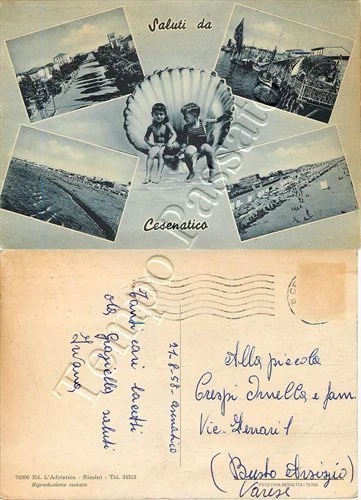 Saluti da
Cesenatico
Tempo Passato
Tanti cari bacetti
da Graziella saluti
Ivana
21-8-58-
Alla piccola
Crespi Ornella e fam.
Vic. Ferrari 1
(Busto Arsizio)
Varese
74306 Ed. L'Adriatica - Rimini - Tel. 24313
Riproduzione vietata
FOTOTIPIA BERRETTA - TERNI